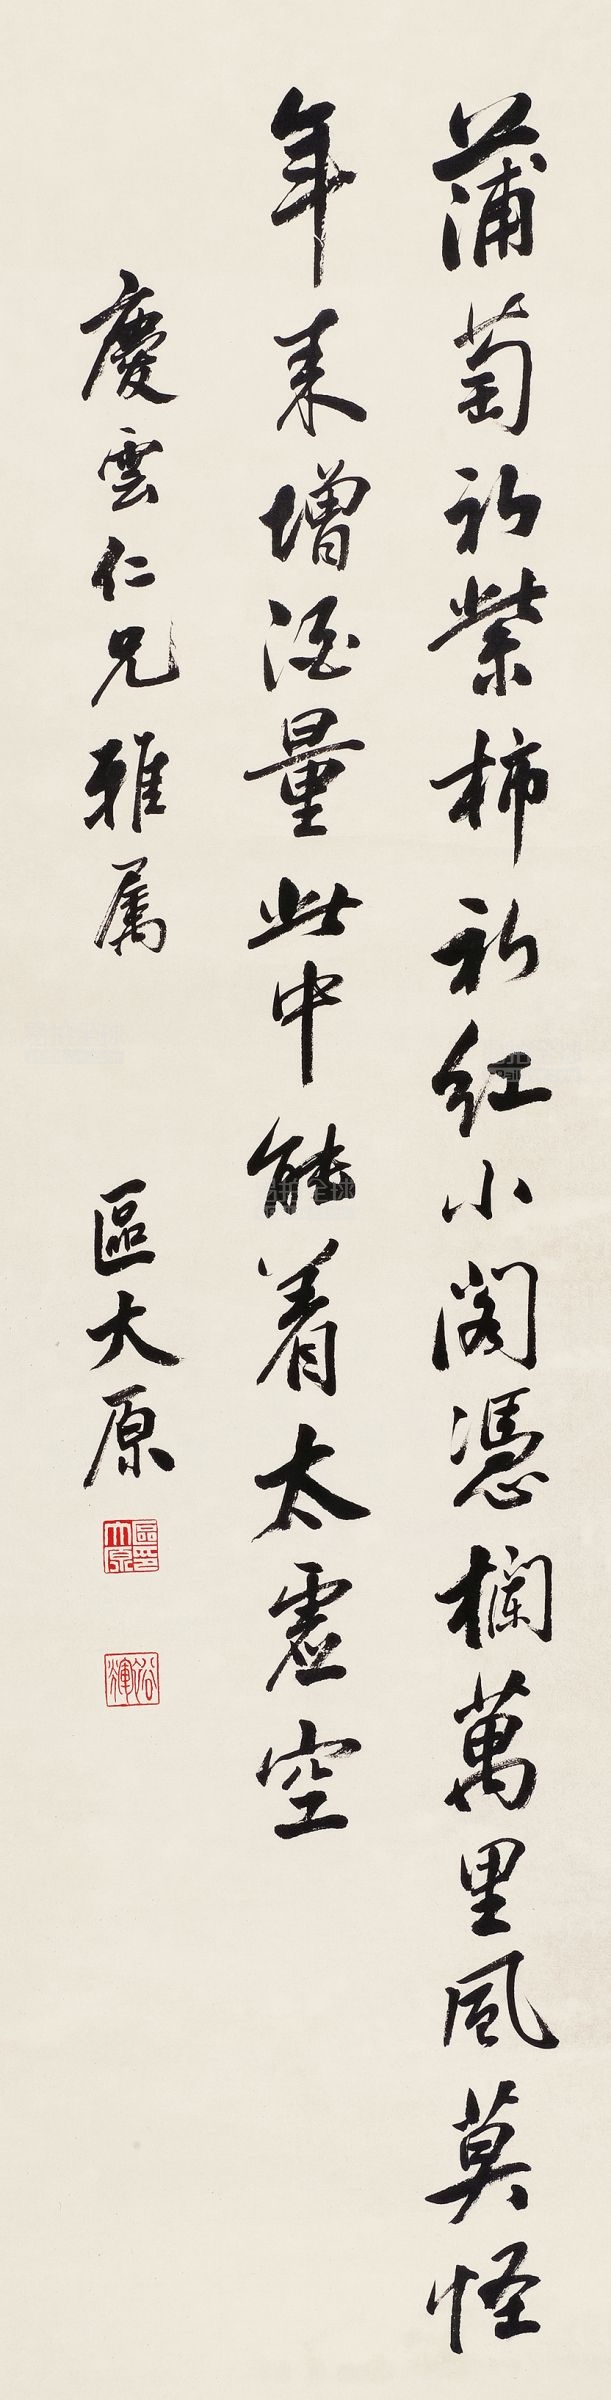 蒲萄初紫柿初紅小閣憑欄萬里風莫怪
年來增酒量此中能着太虛空
慶雲仁兄雅属
區大原
區大原印